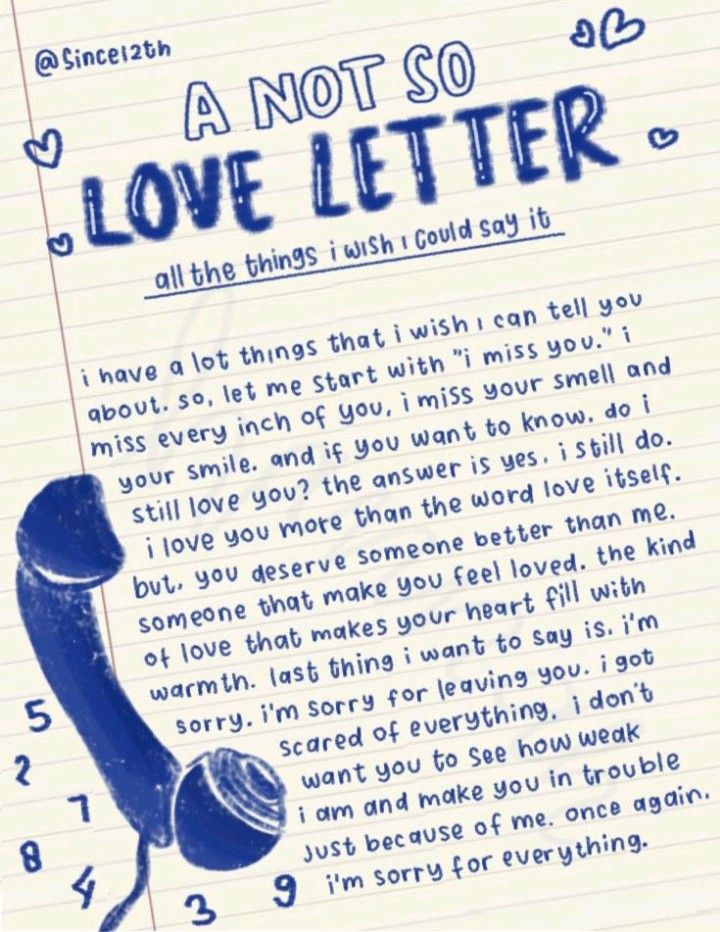 @Since12th
A NOT SO
LOVE LETTER
all the things i wish i could say it
i have a lot things that i wish i can tell you
about. so, let me start with "i miss you." i
miss every inch of you, i miss your smell and
your smile. and if you want to know. do i
still love you? the answer is yes. i still do.
i love you more than the word love itself.
but, you deserve someone better than me.
someone that make you feel loved. the kind
of love that makes your heart fill with
warmth. last thing i want to say is. i'm
sorry. i'm sorry for leaving you. i got
scared of everything. i don't
want you to see how weak
i am and make you in trouble
just because of me. once again.
i'm sorry for everything.
5
2
7
8
4
3
9